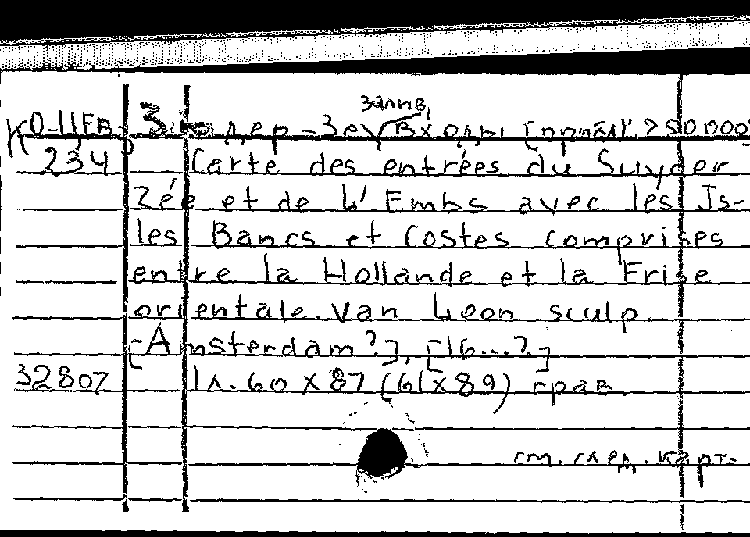 залив,
К 0-11FB З. дер-Зе Входы [прибл. 250 000]
234 Carte des entrées du Suyder
Zée et de L'Embs avec les Is-
les Bancs et Costes comprises
entre la Hollande et la Frise
orientale. Van Loon sculp.
[Amsterdam?], [16...?]
32807 1 л. 60 x 87 (61 x 89) грав.
см. след. карт.